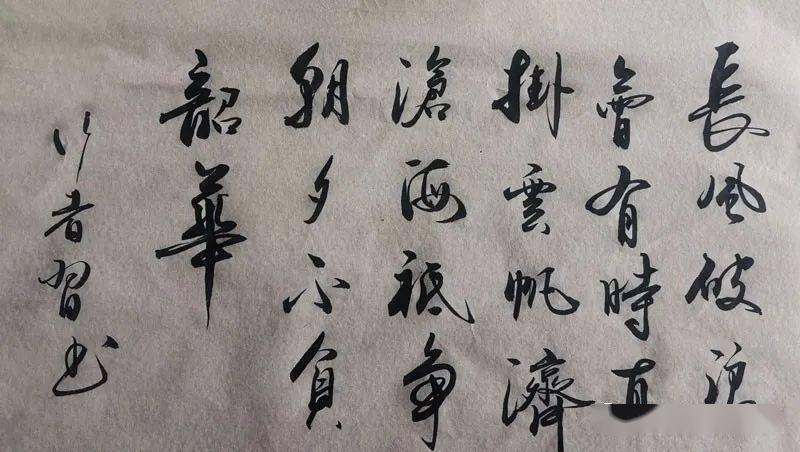 長風破浪
會有時直
掛雲帆濟
滄海祗争
朝夕不負
韶華
行者習书